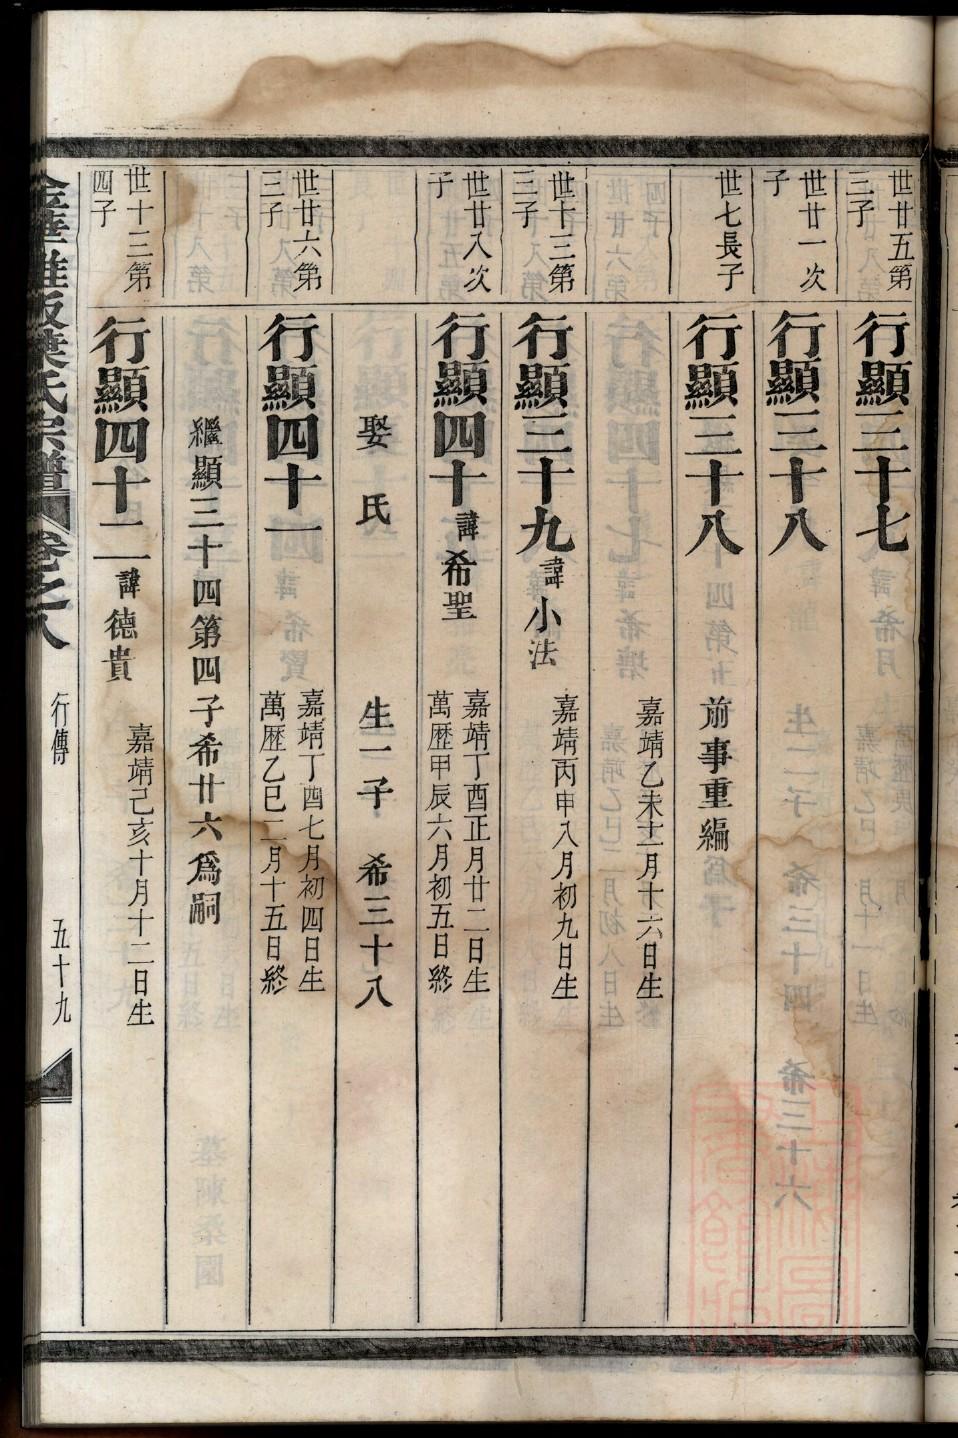 世廿五第
三子
行顯三十七
世廿一次
子
行顯三十八
世七長子
行顯三十八
前事重編
嘉靖乙未十二月十六日生
世十三第
三子
行顯三十九
諱小法
嘉靖丙申八月初九日生
世廿八次
子
行顯四十
諱希聖
嘉靖丁酉正月廿二日生
萬歷甲辰六月初五日終
娶 氏 生一子 希三十八
世廿六第
三子
行顯四十一
嘉靖丁酉七月初四日生
萬歷乙巳二月十五日終
繼顯三十四第四子希廿六爲嗣
世十三第
四子
行顯四十二
諱德貴
嘉靖己亥十月十二日生
葉氏宗譜 卷之八 行傳 五十九